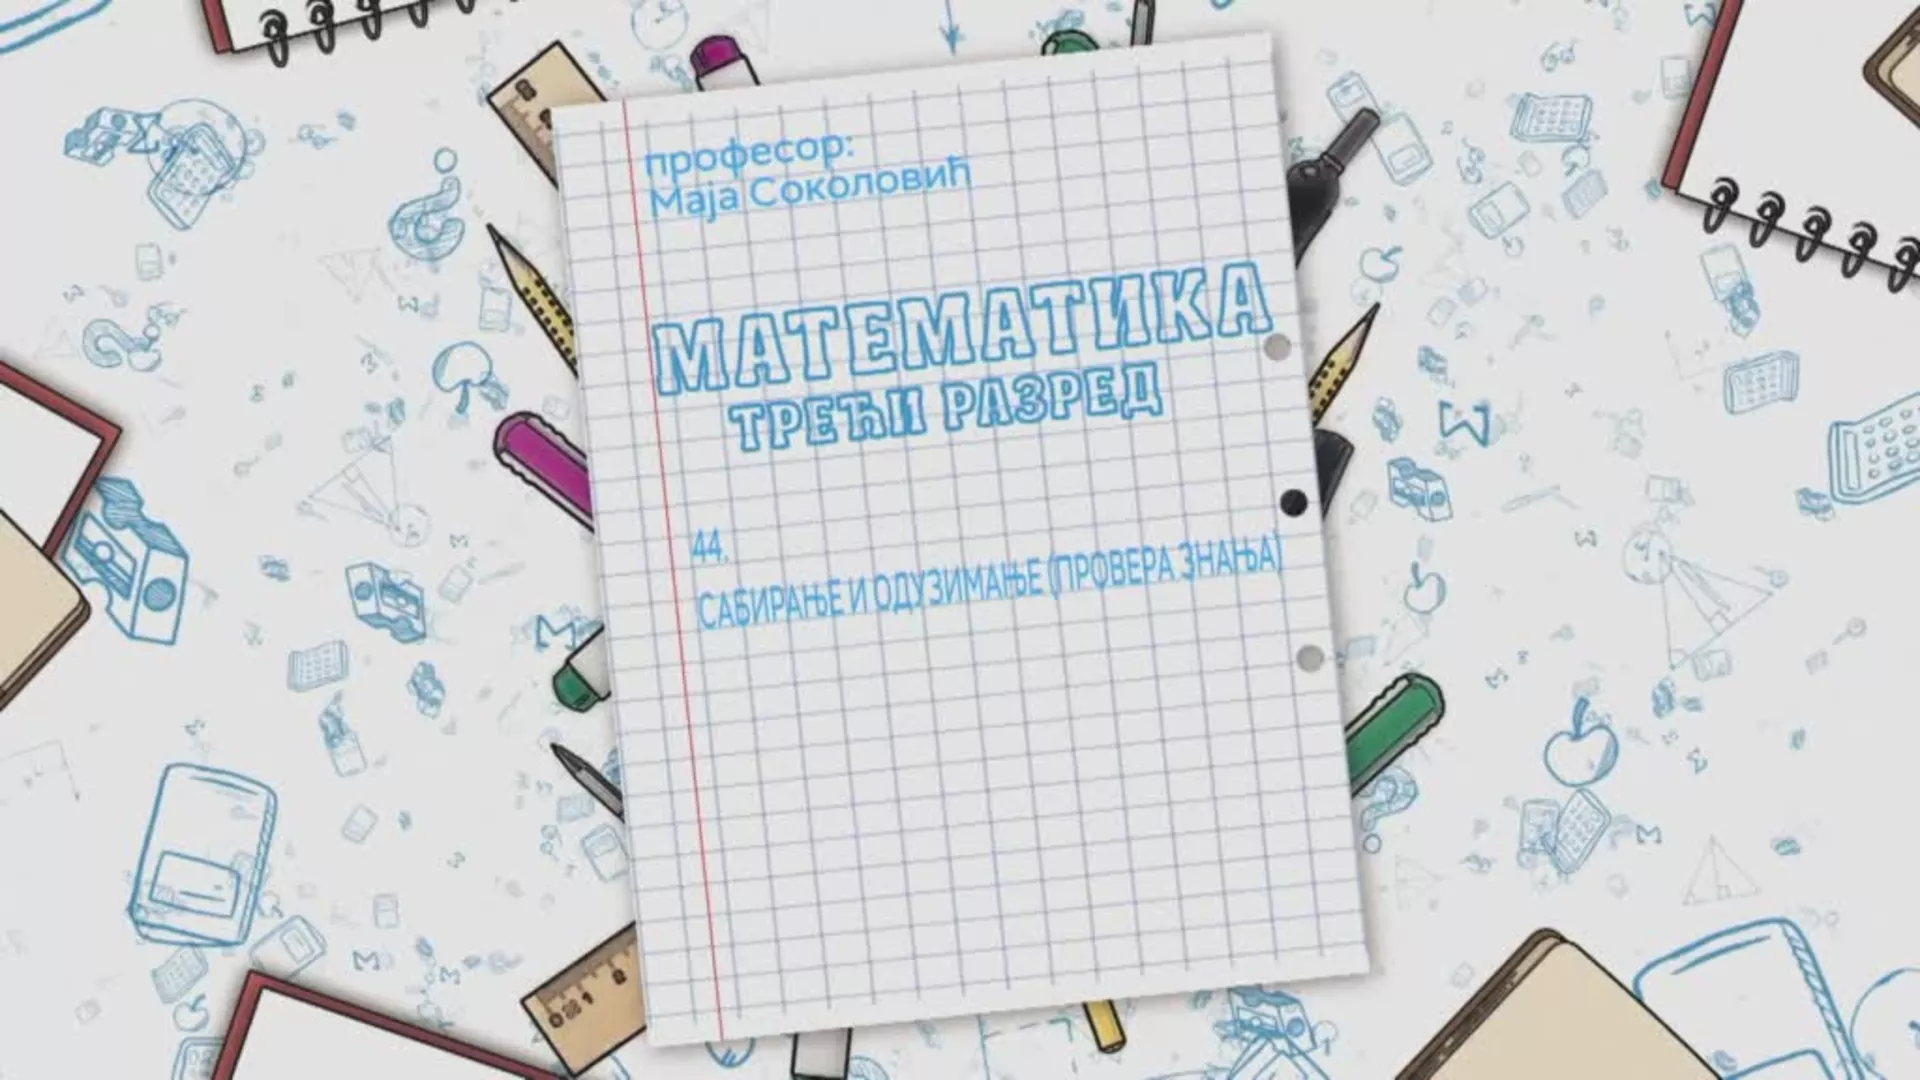 професор:
Маја Соколовић
МАТЕМАТИКА
ТРЕЋИ РАЗРЕД
44.
САБИРАЊЕ И ОДУЗИМАЊЕ (ПРОВЕРА ЗНАЊА)